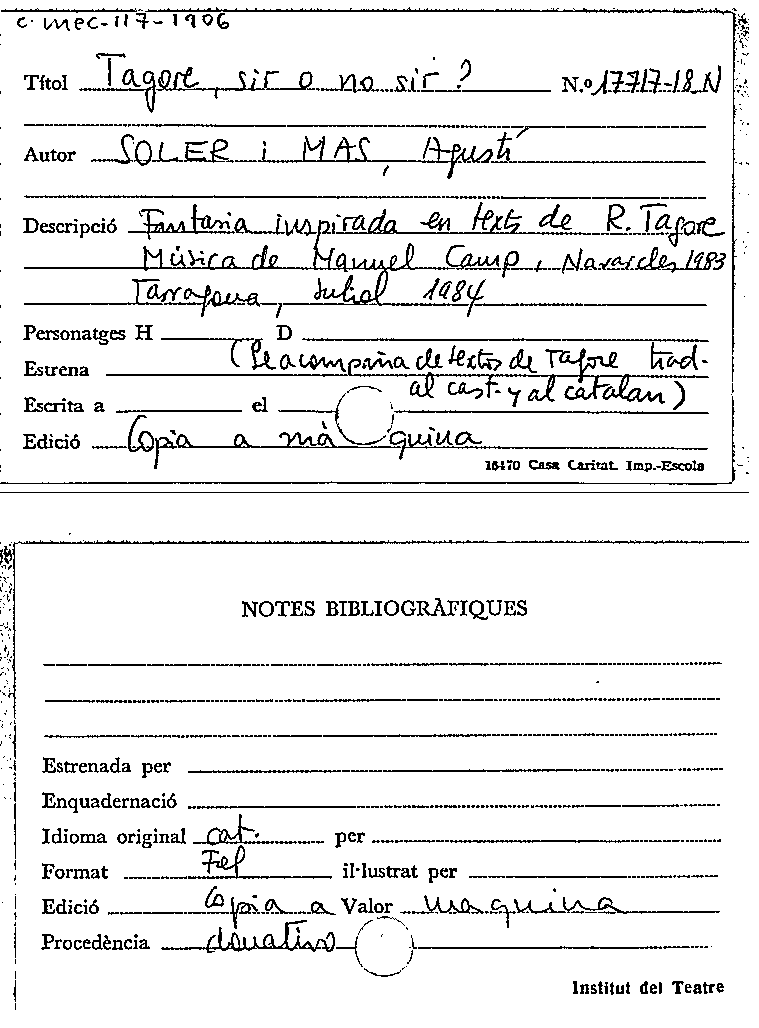 c. mec-117-1906
Títol Tagore, sir o no sir? N.º 17717-18 N
Autor SOLER i MAS, Agustí
Descripció Fantasia inspirada en texts de R. Tagore
Música de Manuel Camp, Navarcles 1983
Tarragona, Juliol 1984
Personatges H D
Estrena (Se acompaña de textos de Tagore trad.
al cast. y al catalan)
Escrita a el
Edició Copia a màquina
16470 Casa Caritat. Imp.-Escola
NOTES BIBLIOGRÀFIQUES
Estrenada per
Enquadernació
Idioma original cat. per
Format il·lustrat per
Edició Copia a Valor maquina
Procedència donativo
Institut del Teatre